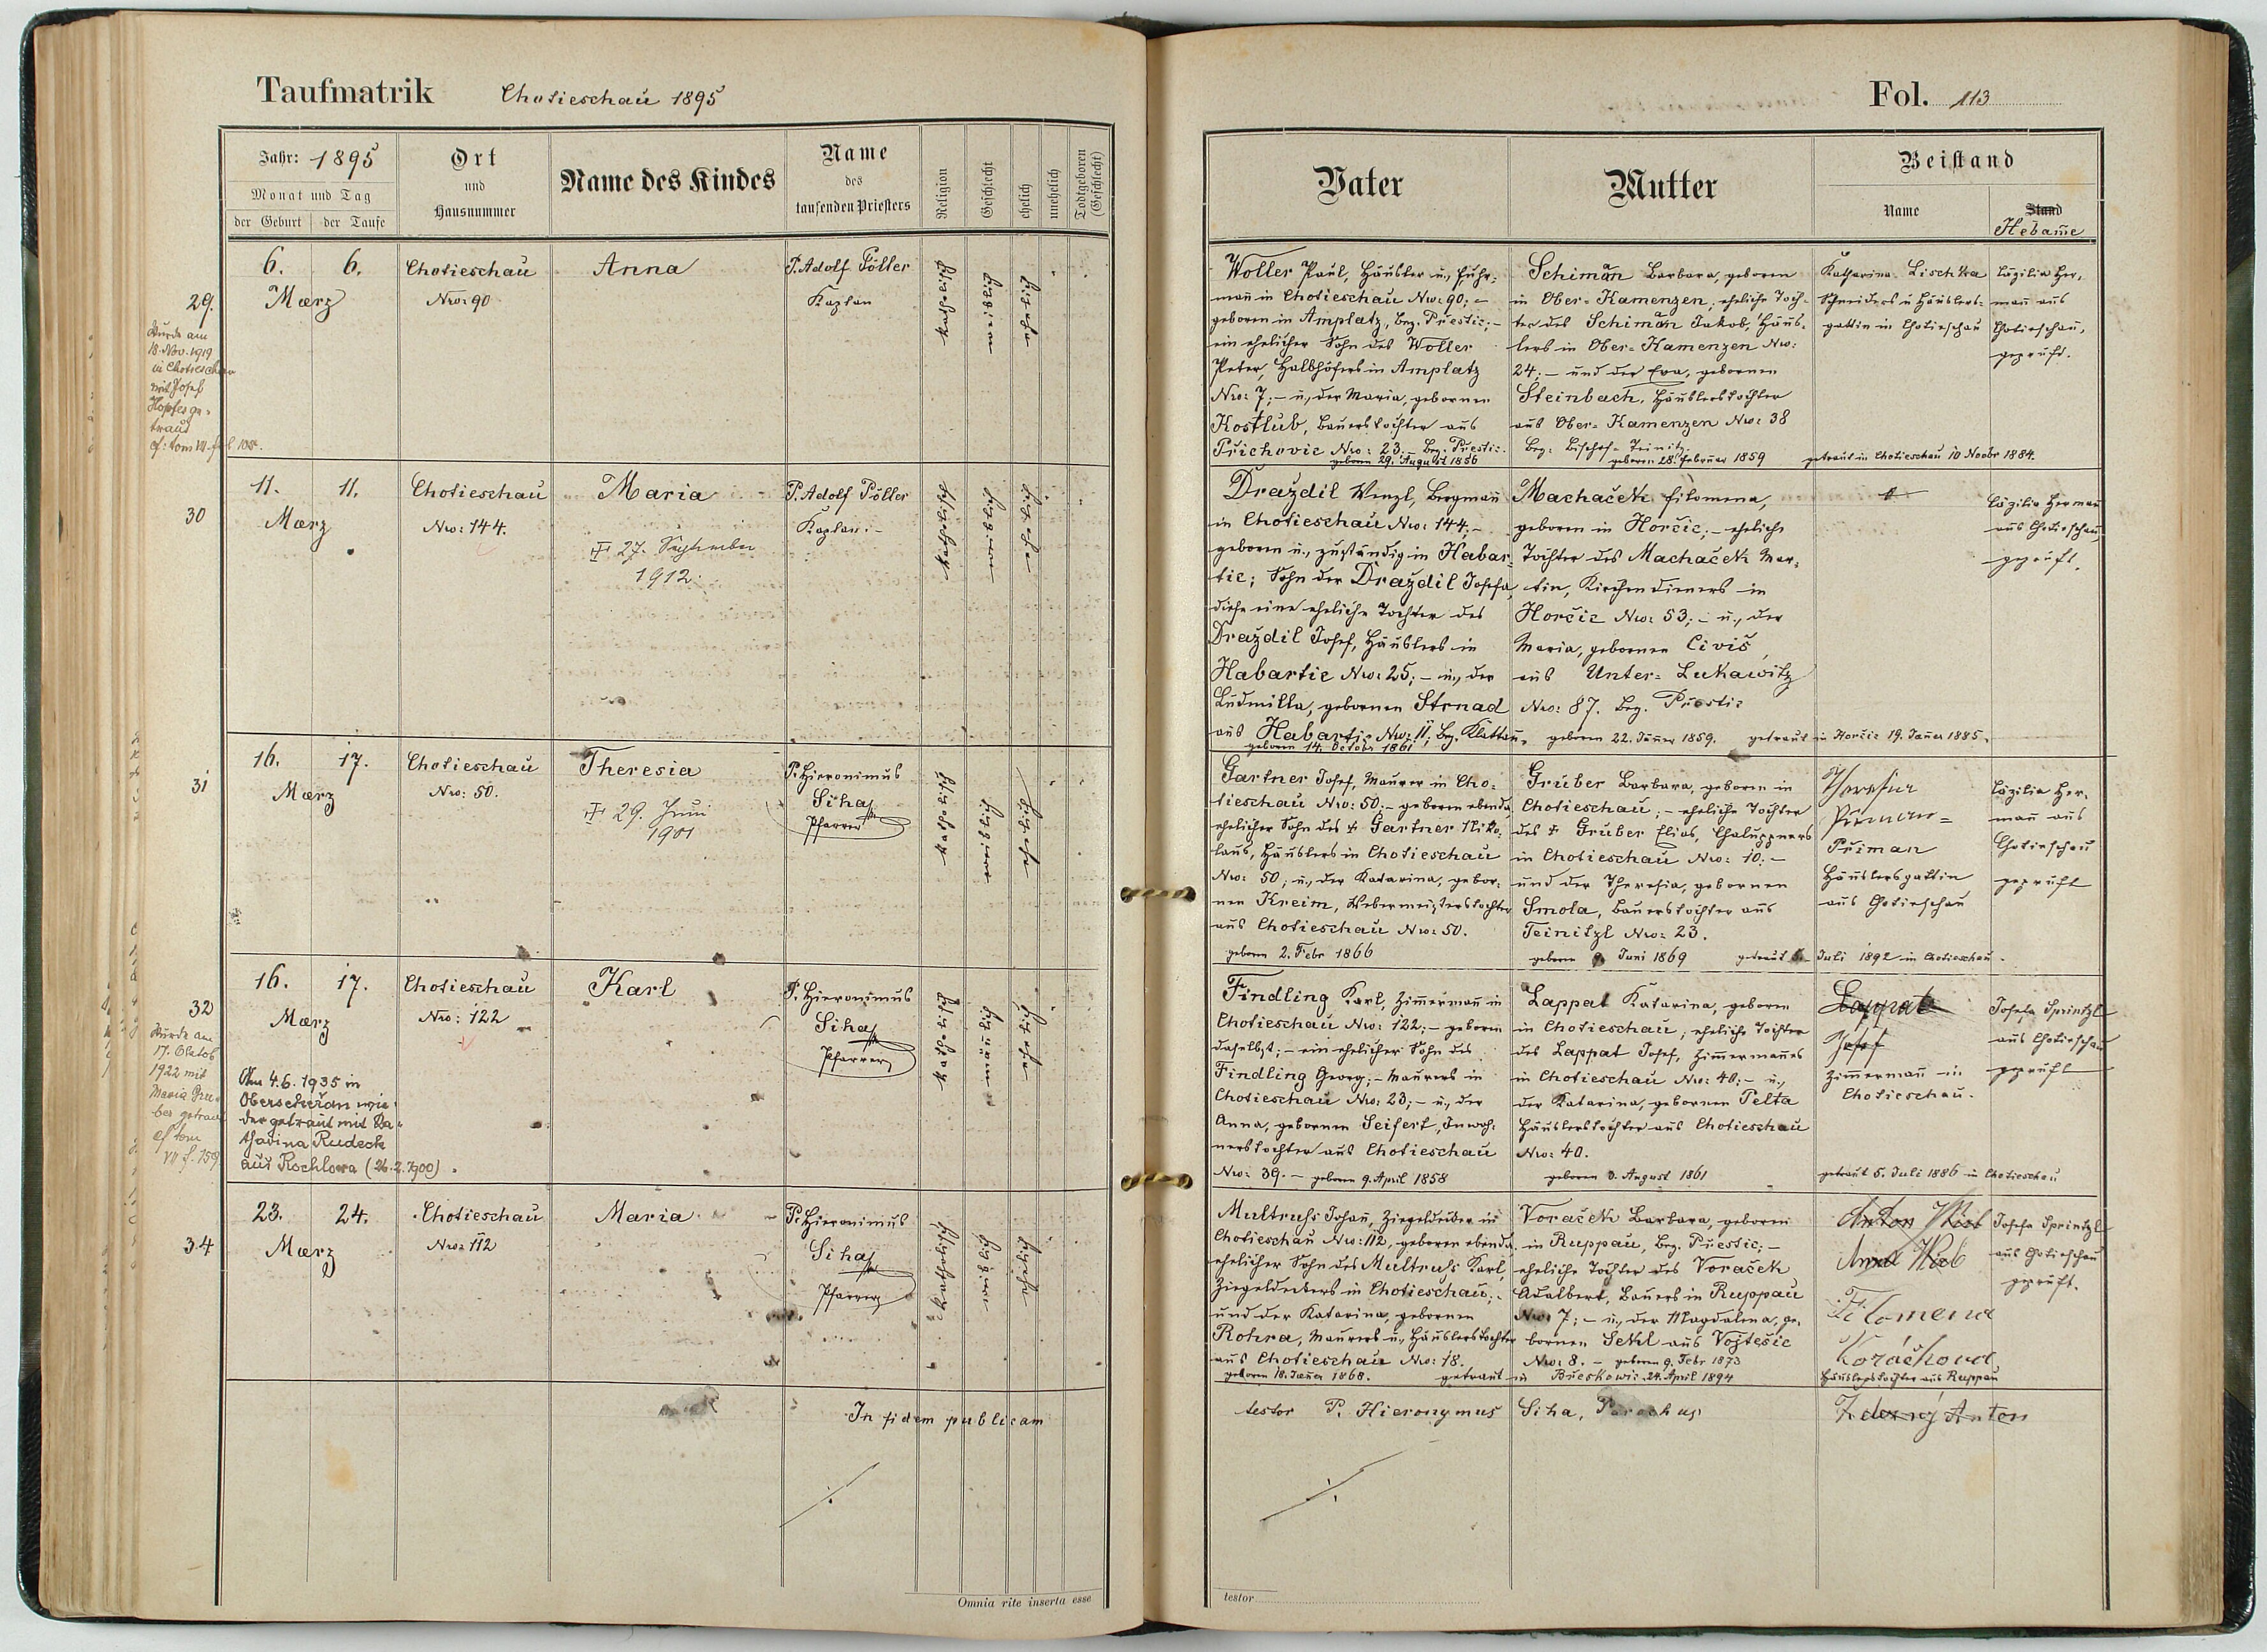 Taufmatrik Chotieschau 1895
Jahr: 1895
Monat und Tag
der Geburt
der Taufe
Ort
und
Hausnummer
Name des Kindes
Name
des
taufenden Priesters
Religion
Geschlecht
ehelich
unehelich
Todtgeboren
(Geschlecht)
29.
6. 6.
März
Chotieschau
Nro: 90
Anna
P. Adolf Pöller
Kaplan
Wurde am
18. Nov. 1919
in Chotieschau
mit Josef
Hopfes ge-
traut
cf: tom VII fol 108.
30
11. 11.
März
Chotieschau
Nro: 144.
Maria
27. September
1912.
P. Adolf Pöller
Kaplan.-
31
16. 17.
März
Chotieschau
Nro: 50.
Theresia
29. Juni
1901
P. Hieronimus
Siha
Pfarrer
32
16. 17.
März
Chotieschau
Nro: 122
Karl
P. Hieronimus
Siha
Pfarrer
Wurde am
17. Oktob
1922 mit
Maria
getraut
cf tom
VII f. 159
Am 4.6.1935 in
wie-
der getraut mit Ka-
tharina Rudeck
aus Rochlowa (26.2.1900).
34
23. 24.
März
Chotieschau
Nro: 112
Maria
P. Hieronimus
Siha
Pfarrer
In fidem publicam
Omnia rite inserta esse
Fol. 113
Vater
Mutter
Beistand
Name
Stand
Hebame
Woller Paul, Häusler u., Fuhr-
man in Chotieschau Nro: 90; -
geboren in Amplatz, Bez. Přestic; -
ein ehelicher Sohn des Woller
Peter, Halbhöfers in Amplatz
Nro: 7; - u., der Maria, gebornen
Kostlub, Bauerstochter aus
Přichovic Nro: 23. - Bez. Přestic.
geboren 29. August 1856
Schimån Barbara, geboren
in Ober-Kamenzen, eheliche Toch-
ter des Schimån Jakob, Häus-
lers in Ober-Kamenzen Nro:
24; - und der Eva, gebornen
Steinbach, Häuslerstochter
aus Ober-Kamenzen Nro: 38
Bez. Bischof-Teinitz.
geboren 28. Februar 1859
Katharina Lischka
Schneiders u Häuslers-
gattin in Chotieschau
getraut in Chotieschau 10 Novbr 1884.
Cäzilia Her-
man aus
Chotieschau,
geprüft.
Draždil Wenzl, Bergman
in Chotieschau Nro: 144; -
geboren u., zuständig in Habar-
tic; Sohn der Draždil Josefa,
diese eine eheliche Tochter des
Draždil Josef, Häuslers in
Habartic Nro: 25; - u., der
Ludmilla, gebornen Strnad
aus Habartic Nro: 11; Bez. Klattau.
geboren 14. Octobr 1861
Machaček Filomena,
geboren in Horčic; - eheliche
Tochter des Machaček Mar-
tin, Kirchendieners in
Horčic Nro: 53; - u., der
Maria, gebornen Civiš,
aus Unter-Lukawitz
Nro: 87. Bez. Přestic
geboren 22. Jäner 1859. getraut in Horčic 19. Jäner 1885.
Cäzilia Herman
aus Chotieschau,
geprüft.
Gartner Josef, Maurer in Cho-
tieschau Nro: 50; - geboren ebenda,
ehelicher Sohn des + Gartner Niko-
laus, Häuslers in Chotieschau
Nro: 50; u., der Katarina, gebor-
nen Kreim, Webermeisterstochter
aus Chotieschau Nro: 50.
geboren 2. Febr 1866
Gruber Barbara, geboren in
Chotieschau; - eheliche Tochter
des + Gruber Elias, Chaluppners
in Chotieschau Nro: 10; -
und der Theresia, gebornen
Smola, Bauerstochter aus
Teinitzl Nro: 23.
geboren Juni 1869 getraut Juli 1892 in Chotieschau.
Theresia
Přiman
Häuslersgattin
aus Chotieschau
Cäzilia Her-
man aus
Chotieschau
geprüft
Findling Karl, Zimerman in
Chotieschau Nro: 122; - geboren
daselbst; - ein ehelicher Sohn des
Findling Georg; - Maurers in
Chotieschau Nro: 23; - u., der
Anna, gebornen Seifert, Inwoh-
nerstochter aus Chotieschau
Nro: 39. - geboren 9. April 1858
Lappat Katarina, geboren
in Chotieschau; eheliche Tochter
des Lappat Josef, Zimermanes
in Chotieschau Nro: 40; - u.,
der Katarina, gebornen Pelta
Häuslerstochter aus Chotieschau
Nro: 40.
geboren August 1861
Lappat
Josef
Zimerman in
Chotieschau.
getraut 5. Juli 1886 in Chotieschau
Josefa Sprintzl
aus Chotieschau
geprüft
Multrus Johan, Ziegeldecker in
Chotieschau Nro: 112, geboren ebenda,
ehelicher Sohn des Multrus Karl,
Ziegeldeckers in Chotieschau; -
und der Katarina, gebornen
Rohra, Maurers u., Häuslerstochter
aus Chotieschau Nro: 18.
geboren 18. Jäner 1868. getraut in Březkowic 24. April 1894
Voraček Barbara, geboren
in Ruppau, Bez. Přestic; -
eheliche Tochter des Voraček
Adalbert, Bauers in Ruppau
Nro: 7; - u., der Magdalena, ge-
bornen Sekl aus Vojtešic
Nro: 8. - geboren 9. Febr 1873
Anton
Anna
Filomena
Koráčkova
Häuslerstochter aus Ruppau
Josefa Sprintzl
aus Chotieschau
geprüft.
testor P. Hieronymus Siha, Parochus
Anton
testor